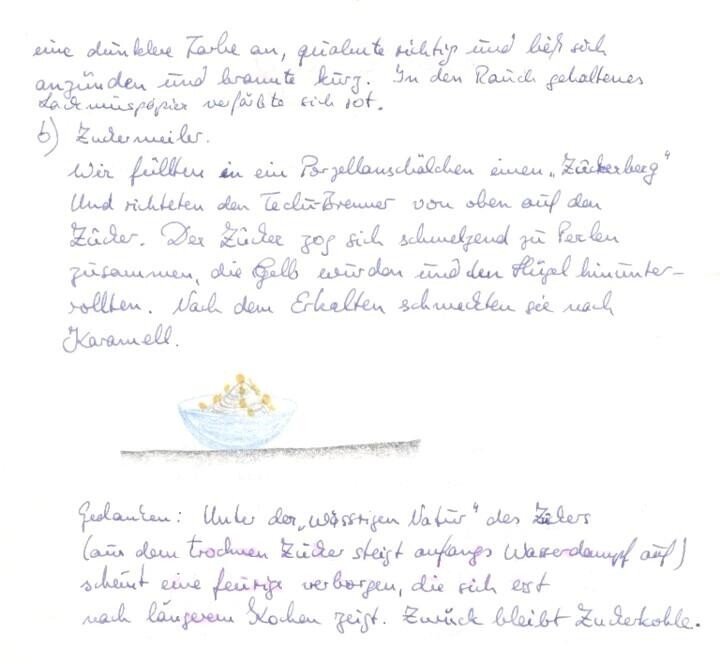 eine dunklere Farbe an, qualmte richtig und ließ sich
anzünden und brannte kurz. In den Rauch gehaltenes
Lackmuspapier verfärbte sich rot.
b) Zuckermeiler.
Wir füllten in ein Porzellanschälchen einen „Zuckerberg“
Und richteten den Teclu-Brenner von oben auf den
Zucker. Der Zucker zog sich schmelzend zu Perlen
zusammen, die Gelb wurden und den Hügel hinunter-
rollten. Nach dem Erkalten schmeckten sie nach
Karamell.
Gedanken: Unter der „wässrigen Natur“ des Zuckers
(aus dem trocknen Zucker steigt anfangs Wasserdampf auf)
scheint eine feurige verborgen, die sich erst
nach längerem Kochen zeigt. Zurück bleibt Zuckerkohle.